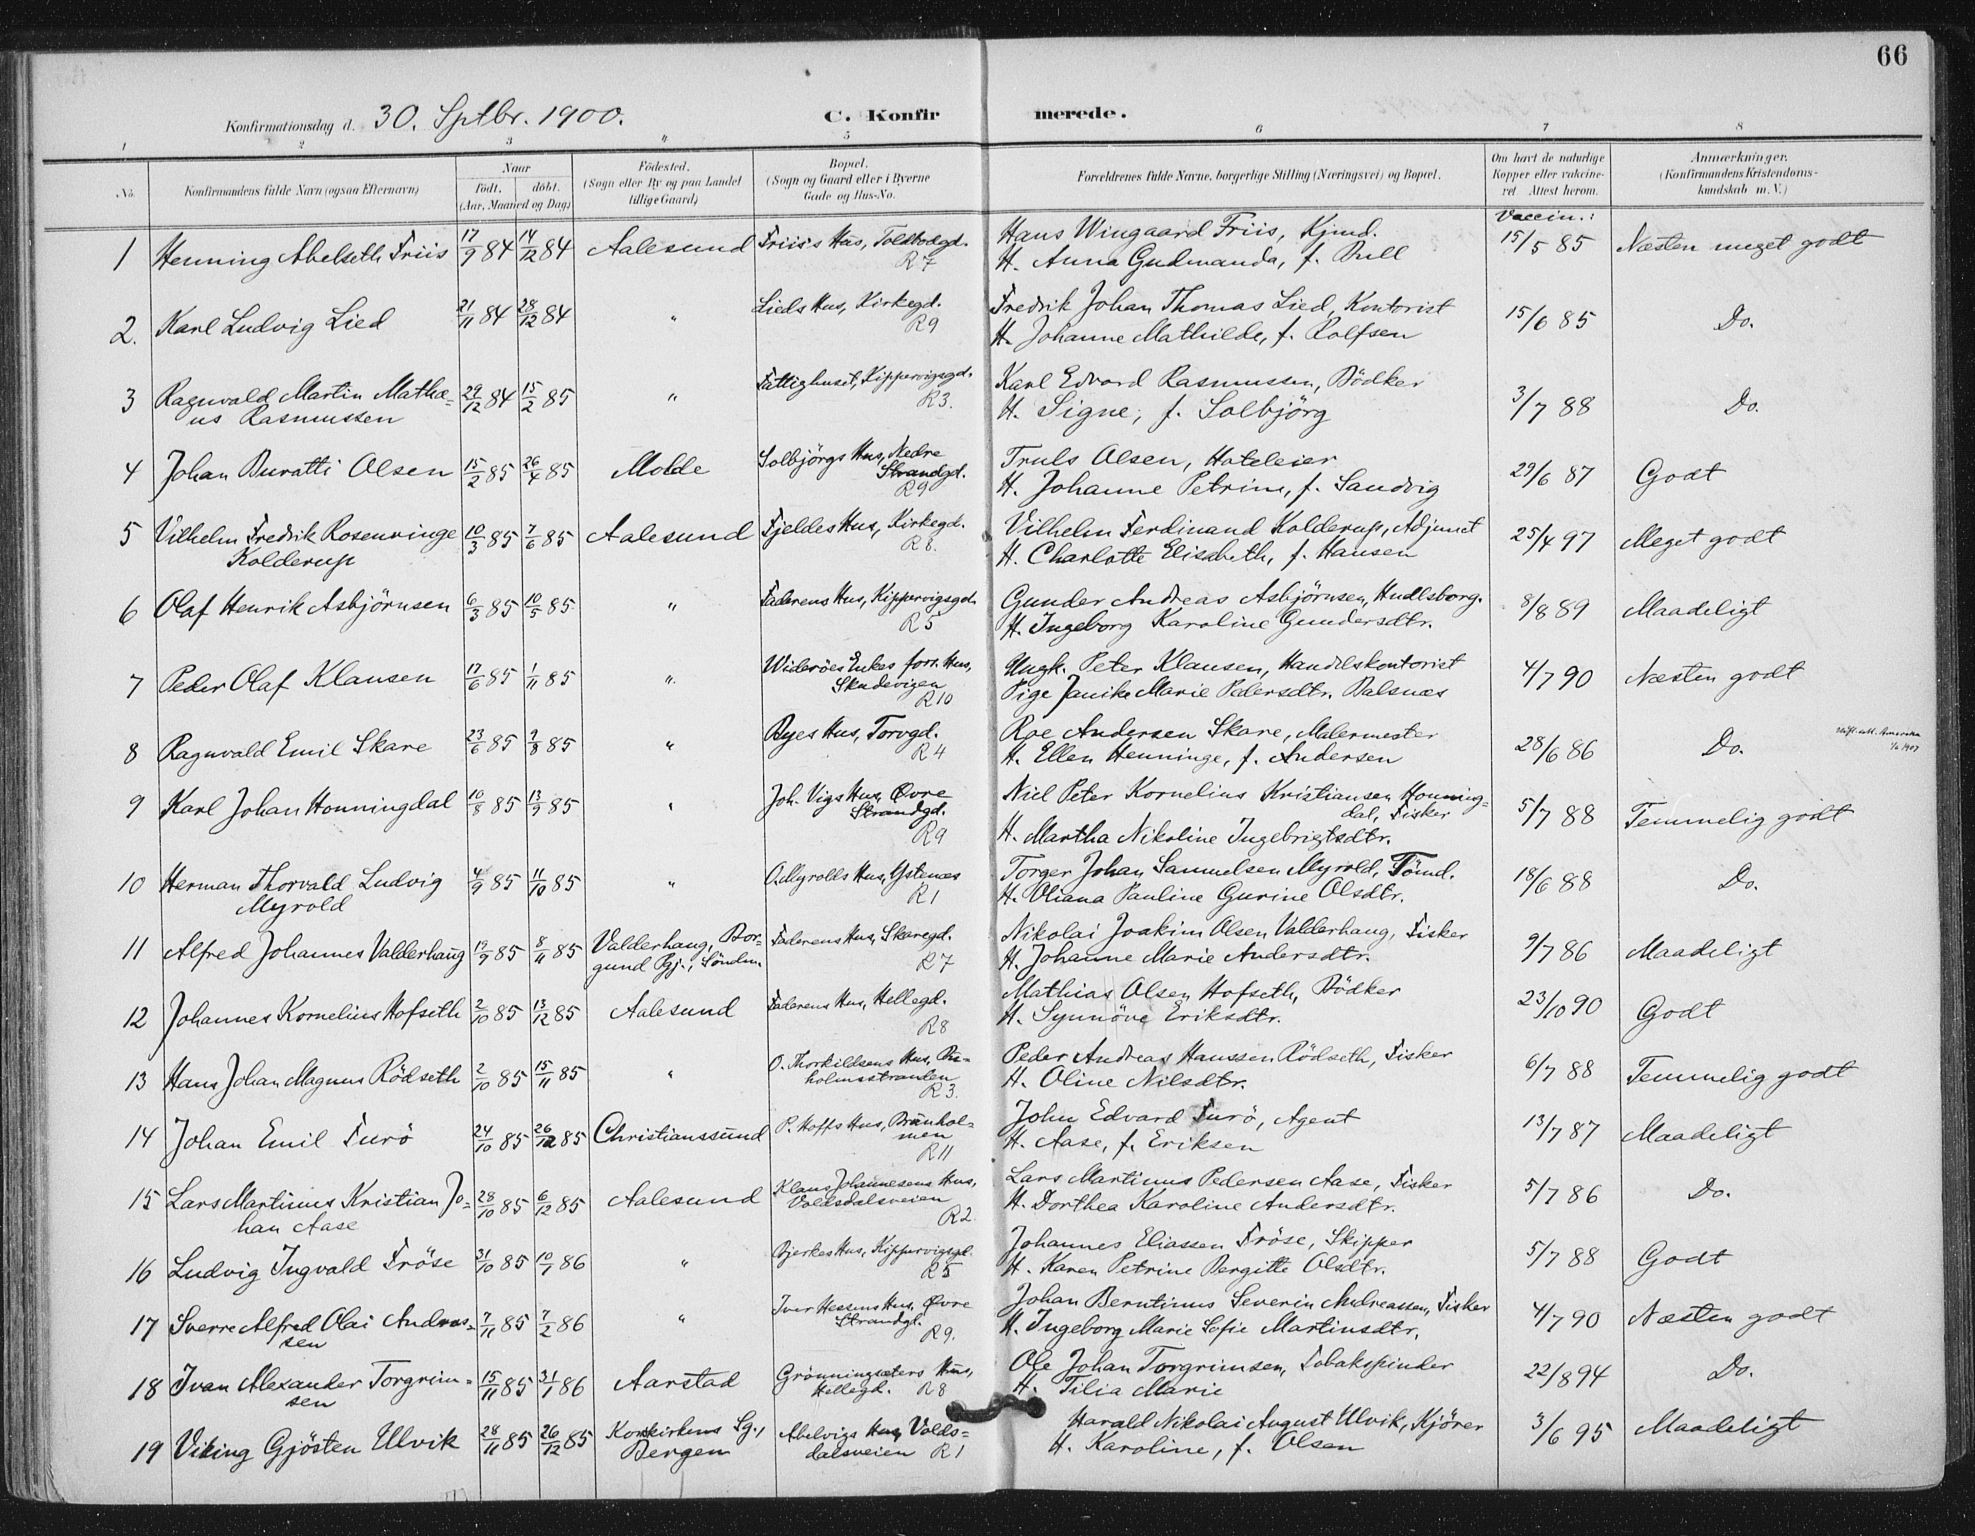 66
Konfirmationsdag d. 30. Sptbr. 1900. C. Konfirmerede.
1 2 3 4 5 6 7 8
No. Konfirmandens fulde Navn (ogsaa Efternavn) Naar født, døbt. (Aar, Maaned og Dag) Fødested. (Sogn eller By og paa Landet tillige Gaard) Bopæl. (Sogn og Gaard eller i Byerne Gade og Hus-No. Forældrenes fulde Navne, borgerlige Stilling (Næringsvei) og Bopæl. Om havt de naturlige Kopper eller vaccineret Attest herom. Anmærkninger. (Konfirmandens Kristendomskundskab m. V.)
Vaccin.:
1 Henning Abelseth Friis 17/9 84 14/12 84 Aalesund Friis's Hus, Toldbodgd. R7 Hans Wingaard Friis, Kjmd. 15/5 85 Næsten meget godt
H. Anna Gudmanda, f. Bull
2. Karl Ludvig Lied 21/11 84 28/12 84 " Lieds Hus, Kirkegd. R9 Fredrik Johan Thomas Lied, Kontorist 15/6 85 Do.
H. Johanne Mathilde, f. Rolfsen
3 Ragnvald Martin Mathæ- 29/12 84 15/2 85 " Fattighuset, Kippervigsgd. R3. Karl Edvard Rasmussen, Bödker 3/7 88 Do.
us Rasmussen H. Signe, f. Solbjörg
4 Johan Buratti Olsen 15/2 85 26/4 85 Molde Solbjörgs Hus, Nedre Strandgd. R9 Truls Olsen, Hoteleier 29/6 87 Godt
H. Johanne Petrine, f. Sandvig
5 Vilhelm Fredrik Rosenvinge 10/3 85 7/6 85 Aalesund Fjeldes Hus, Kirkegd. R8. Vilhelm Ferdinand Kolderup, Adjunct 25/4 97 Meget godt
Kolderup H. Charlotte Elisabeth, f. Hansen
6 Olaf Henrik Asbjörnsen 6/3 85 10/5 85 " Faderens Hus, Kippervigsgd. R5 Gunder Andreas Asbjörnsen, Hndlsborg. 8/8 89 Maadeligt
H. Ingeborg Karoline Gundersdtr.
7 Peder Olaf Klausen 17/6 85 1/11 85 " Wideröes Enkes forr. Hus, Skudevigen R10 Ungk. Peter Klausen, Handelskontorist 4/7 90 Næsten godt
Pige Janike Marie Pedersdtr. Balsnæs
8 Ragnvald Emil Skare 23/6 85 9/8 85 " Byes Hus, Torvgd. R4 Roe Andersen Skare, Malermester 28/6 86 Do.
H. Ellen Henninge, f. Andersen
9 Karl Johan Honningdal 10/8 85 13/9 85 " Joh. Vigs Hus, Øvre Strandgd. R9 Niel Peter Kornelius Kristiansen Honning- 5/7 88 Temmelig godt
dal, Fisker
H. Martha Nikoline Ingebrigtsdtr.
10 Herman Thorvald Ludvig 4/9 85 11/10 85 " O. Myrolds Hus, Ystenæs R1 Torger Johan Samuelsen Myrold, Tömd. 18/6 88 Do.
Myrold H. Oliana Pauline Gurine Olsdtr.
11 Alfred Johannes Valderhaug 19/9 85 8/11 85 Valderhaug, Bor- gund Pgj., Söndm. Faderens Hus, Skaregd. R7 Nikolai Joakim Olsen Valderhaug, Fisker 9/7 86 Maadeligt
H. Johanne Marie Andersdtr.
12 Johannes Kornelius Hofseth 2/10 85 13/12 85 Aalesund Faderens Hus, Hellegd. R8 Mathias Olsen Hofseth, Bödker 23/10 90 Godt
H. Synnöve Eriksdtr.
13 Hans Johan Magnus Rödseth 2/10 85 15/11 85 " O. Thorkildsens Hus, Bu- holmsstranden R3. Peder Andreas Hanssen Rödseth, Fisker 6/7 88 Temmelig godt
H. Oline Nilsdtr.
14 Johan Emil Furö 24/10 85 26/12 85 Christianssund P. Hoffs Hus, Brunhol- men R11 John Edvard Furö, Agent 13/7 87 Maadeligt
H. Aase, f. Eriksen
15 Lars Martinus Kristian Jo- 28/10 85 6/12 85 Aalesund Klaus Johannesens Hus, Voldsdalsveien R2 Lars Martinus Pedersen Aase, Fisker 5/7 86 Do.
han Aase H. Dorthea Karoline Andersdtr.
16 Ludvig Ingvald Fröse 31/10 85 10/1 86 " Bjerkes Hus, Kippervigsgd. R5 Johannes Eliassen Fröse, Skipper 5/7 88 Godt
H. Karen Petrine Bergitte Olsdtr.
17 Sverre Alfred Olai Andreas- 7/11 85 7/2 86 " Iver Hessens Hus, Øvre Strandgd. R9. Johan Berntinus Severin Andreassen, Fisker 4/7 90 Næsten godt
sen H. Ingeborg Marie Sofie Martinsdtr.
18 Ivan Alexander Torgrim- 15/11 85 31/1 86 Aarstad Grönningsæters Hus, Hellegd. R8 Ole Johan Torgrimsen, Tobakspinder 22/8 94 Do.
sen H. Tilia Marie
19 Viking Gjösten Ulvik 28/11 85 26/12 85 Korskirkens Sg., Bergen Abelvigs Hus, Volds- dalsveien R1 Harald Nikolai August Ulvik, Kjörer 3/6 95 Maadeligt
H. Karoline, f. Olsen